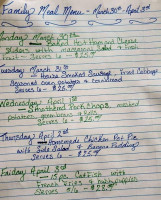 Family Meal Menu - March 30th - April 3rd
Monday March 30th
Baked Hot Ham and
with
Serves 4 - $26.00
Tuesday March 31st
House Smoked Sausage, Fried Cabbage
Serves 4 - $26.00
Wednesday April 1st
Smothered Pork Chops, mashed
potatoes, green beans & rolls
Serves 4 - $26.00
Thursday April 2nd
Homemade Chicken Pot Pie
with Side Salad & Banana Pudding
Serves 4 - $26.00
Friday April 3rd
Fried Catfish with
French Fries & Hushpuppies
Serves 4 - $28.00